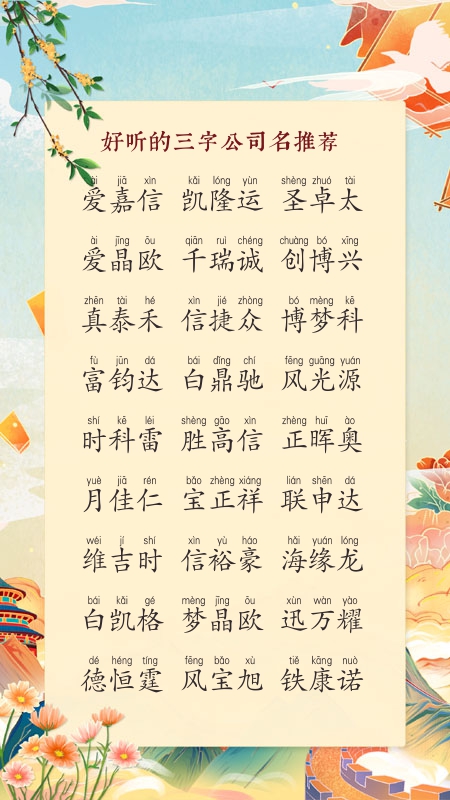 好听的三字公司名推荐
ài jiā xìn kǎi lóng yùn shèng zhuó tài
爱嘉信 凯隆运 圣卓太
ài jīng ōu qiān ruì chéng chuàng bó xīng
爱晶欧 千瑞诚 创博兴
zhēn tài hé xìn jié zhòng bó mèng kē
真泰禾 信捷众 博梦科
fù jūn dá bái dǐng chí fēng guāng yuán
富钧达 白鼎驰 风光源
shí kē léi shèng gāo xìn zhèng huī ào
时科雷 胜高信 正晖奥
yuè jiā rén bǎo zhèng xiáng lián shēn dá
月佳仁 宝正祥 联申达
wéi jí shí xìn yù háo hǎi yuán lóng
维吉时 信裕豪 海缘龙
bái kǎi gé mèng jīng ōu xùn wàn yào
白凯格 梦晶欧 迅万耀
dé héng tíng fēng bǎo xù tiě kāng nuò
德恒霆 风宝旭 铁康诺